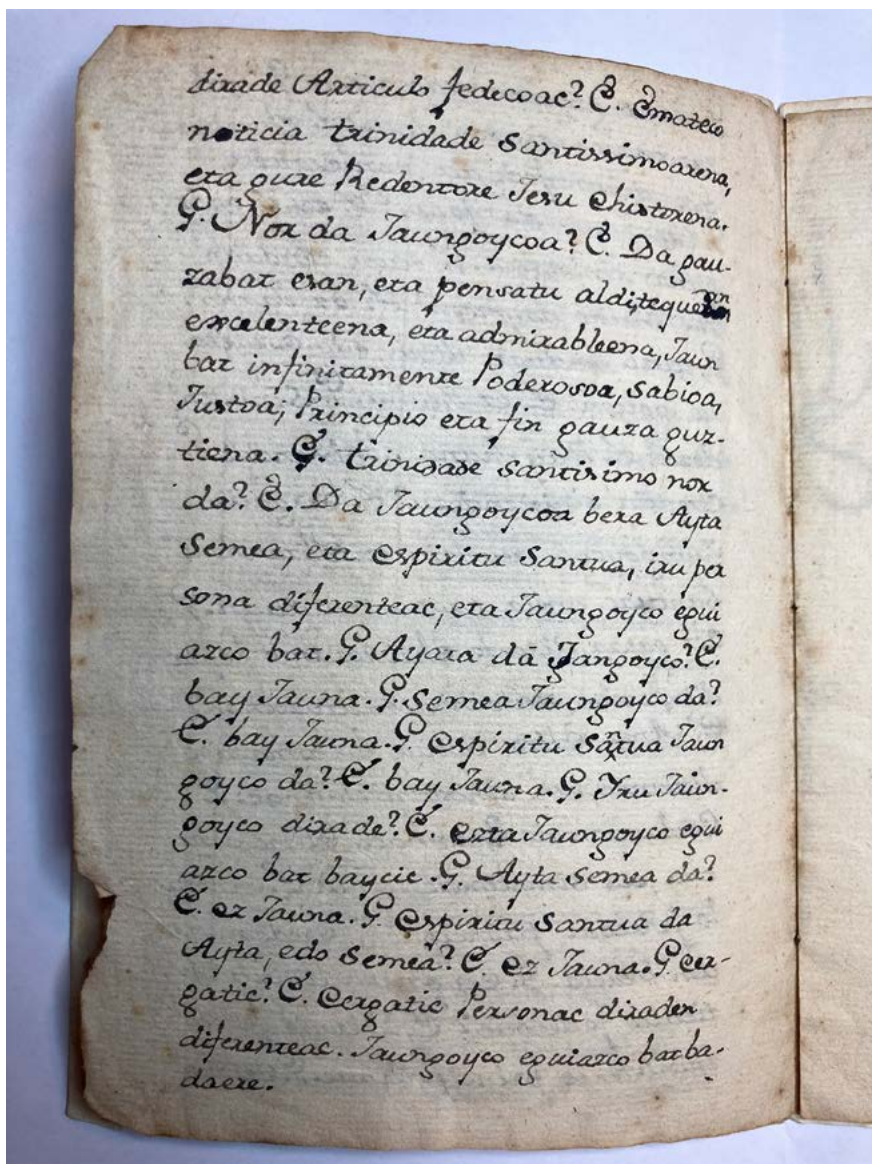 dirade Articulo fedecoac? E. Emateco
noticia trinidade Santissimoarena,
eta gure Redentore Jesu Christorena.
G. Nor da Jaungoycoa? E. Da gau-
zabat esan, eta pensatu alditequean
excelenteena, eta admirableena, Jaun
bat infinitamente Poderosoa, Sabioa,
Justoa; Principio eta fin gauza guz-
tiena. G. trinidade santisimo nor
da? E. Da Jaungoycoa bera Ayta
Semea, eta Espiritu Santua, iru per
sona diferenteac, eta Jaungoyco egui
azco bat. G. Ayata da Jangoyco? E.
bay Jauna. G. Semea Jaungoyco da?
E. bay Jauna. G. Espiritu Santua Jaun
goyco da? E. bay Jauna. G. Yru Jaun-
goyco dirade? E. ezta Jaungoyco egui
azco bat baycic. G. Ayta Semea da?
E. ez Jauna. G. Espiritu Santua da
Ayta, edo Semea? E. ez Jauna. G. cer-
gatic? E. Cergatic Personac diraden
diferenteac. Jaungoyco eguiazco bat ba-
daere.